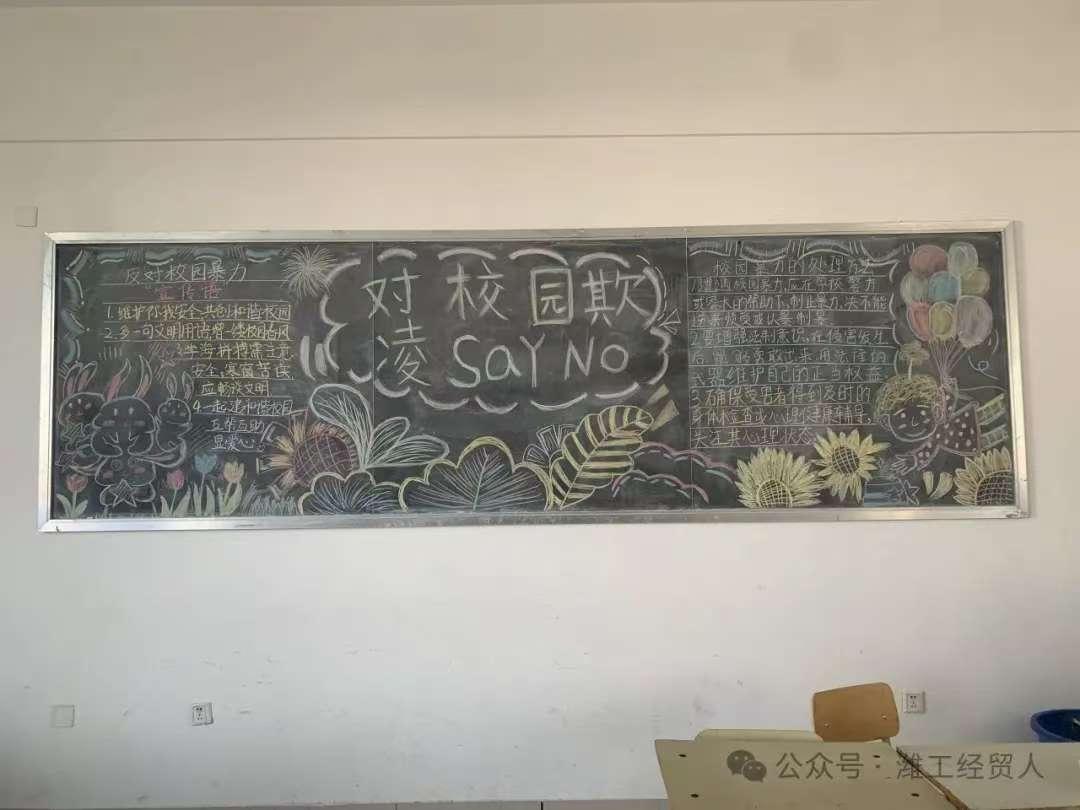 反对校园暴力
宣传语
1.维护你我安全,共创和谐校园
2.多一句文明用语,增一缕校园春风
3.学海拼搏需注意
安全,寒窗苦读
应畅谈文明
4.一起建和谐校园
互帮互助
显爱心
对校园欺
凌 SaY No
校园暴力的处理方法
1.遭遇校园暴力,应在学校、警方
或家人的帮助下,制止暴力,决不能
2.要增强法制意识,在侵害发生
后能够勇敢站出来用法律的
武器维护自己的正当权益
3.确保受害者得到及时的
身体检查或心理健康辅导
关注其心理状态
公众号·潍工经贸人